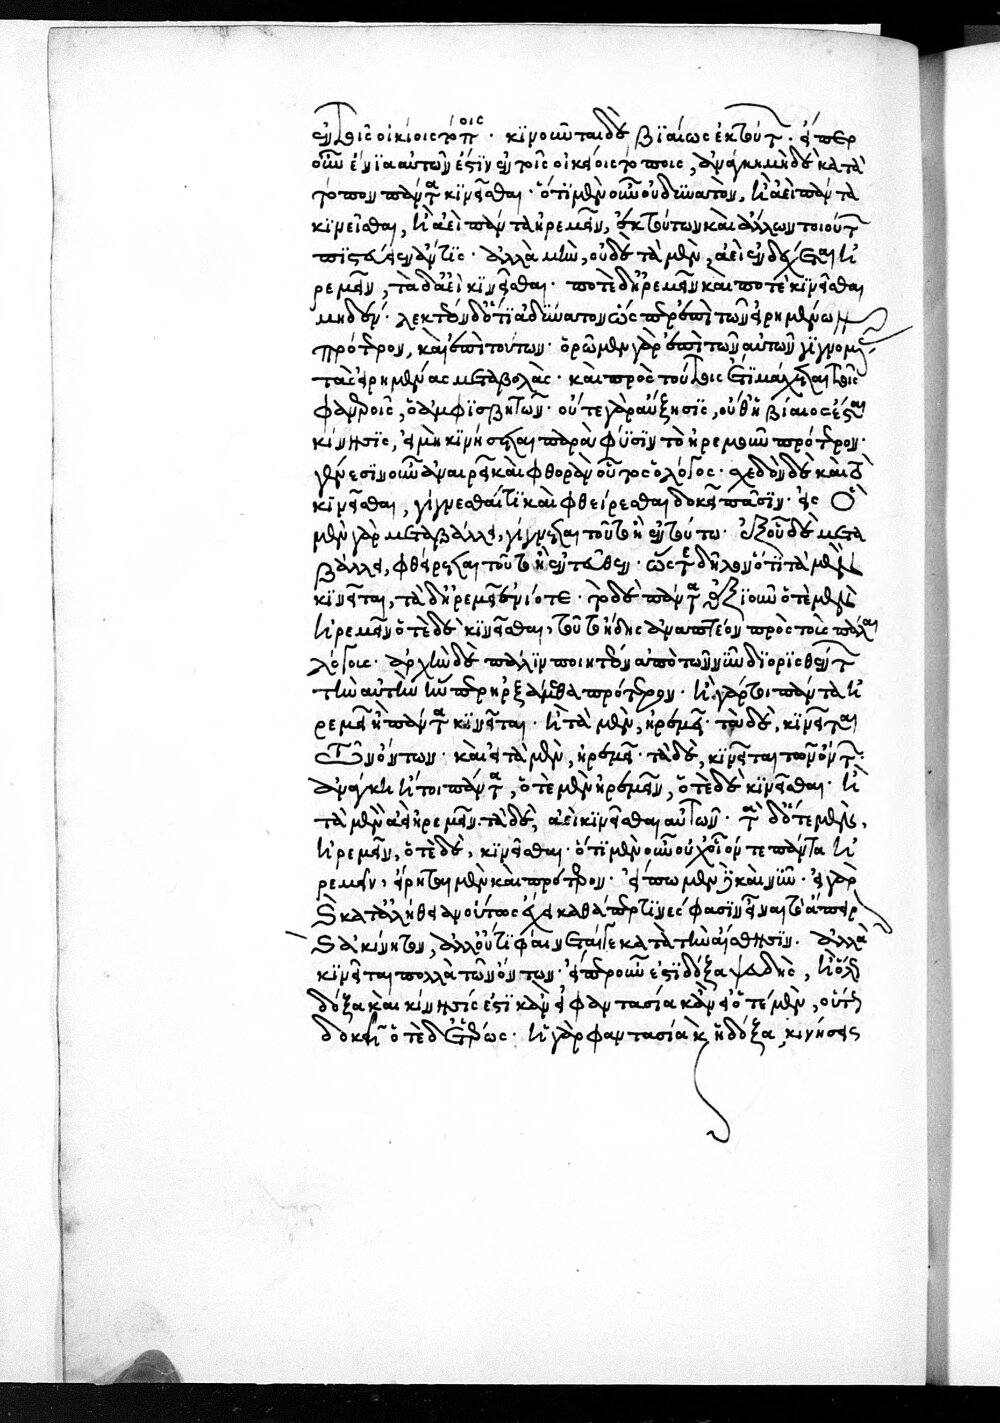 ἐν τοῖς οἰκείοις τόποις· κινοῦνται δὲ βιαίως ἐκ τούτων· εἴπερ
οὖν ἔνια αὐτῶν ἐστὶν ἐν τοῖς οἰκείοις τόποις, ἀνάγκη μηδὲ κατὰ
τόπον πάντα κινεῖσθαι· ὅτι μὲν οὖν ἀδύνατον, ἢ ἀεὶ πάντα
κινεῖσθαι, ἢ ἀεὶ πάντα ἠρεμεῖν, ἐκ τούτων καὶ ἄλλων τοιούτων
πιστεύσειεν ἄν τις· ἀλλὰ μὴν, οὐδὲ τὰ μὲν, ἀεὶ ἐνδέχεται ἠ
ρεμεῖν, τὰ δ' ἀεὶ κινεῖσθαι· ποτὲ δ' ἠρεμεῖν καὶ ποτὲ κινεῖσθαι
μηδέν· λεκτέον δ' ὅτι ἀδύνατον ὥσπερ ἐπὶ τῶν εἰρημένων
πρότερον, καὶ ἐπὶ τούτων· ὁρῶμεν γὰρ ἐπὶ τῶν αὐτῶν γιγνομέ
τὰς εἰρημένας μεταβολάς· καὶ πρὸς τούτοις ὅτι μάχεται τοῖς
φανεροῖς, ὁ ἀμφισβητῶν· οὔτε γὰρ αὔξησις, οὔθ' ἡ βίαιος ἔσται
κίνησις, εἰ μὴ κινήσεται παρὰ φύσιν τὸ ἠρεμοῦν πρότερον·
γένεσιν οὖν ἀναιρεῖ καὶ φθορὰν οὗτος ὁ λόγος· σχεδὸν δὲ καὶ τὸ
κινεῖσθαι, γίγνεσθαί τι καὶ φθείρεσθαι δοκεῖ πᾶσιν· εἰς ὃ
μὲν γὰρ μεταβάλλει, γίγνεται τοῦτο ἢ ἐν τούτῳ· ἐξ οὗ δὲ μετα
βάλλει, φθείρεται τοῦτο ἢ ἐντεῦθεν· ὥστε δῆλον ὅτι τὰ μὲν
κινεῖται, τὰ δ' ἠρεμεῖ ἐνίοτε· τὸ δὲ πάντα ἀξιοῦν ὁτὲ μὲν
ἠρεμεῖν ὁτὲ δὲ κινεῖσθαι, τοῦτ' ἤδη συναπτέον πρὸς τοὺς πάλαι
λόγους· ἀρχὴν δὲ πάλιν ποιητέον ἀπὸ τῶν νῦν διορισθέντων
τὴν αὐτὴν ἥνπερ ἠρξάμεθα πρότερον· ἢ γάρ τοι πάντα ἠ
ρεμεῖ ἢ πάντα κινεῖται· ἢ τὰ μὲν, ἠρεμεῖ· τὰ δὲ, κινεῖται
τῶν ὄντων· καὶ εἰ τὰ μὲν, ἠρεμεῖ· τὰ δὲ, κινεῖται τῶν ὄντων·
ἀνάγκη ἤτοι πάντα, ὁτὲ μὲν ἠρεμεῖν, ὁτὲ δὲ κινεῖσθαι· ἢ
τὰ μὲν ἀεὶ ἠρεμεῖν· τὰ δὲ, ἀεὶ κινεῖσθαι αὐτῶν· τὰ δ' ὁτὲ μὲν,
ἠρεμεῖν, ὁτὲ δὲ, κινεῖσθαι· ὅτι μὲν οὖν οὐχ οἷόν τε πάντα ἠ
ρεμεῖν, εἴρηται μὲν καὶ πρότερον· εἴπωμεν δὲ καὶ νῦν· εἰ γὰρ
καὶ κατ' ἀλήθειαν οὕτως ἔχει καθάπερ τινές φασιν εἶναι τὸ ὂν ἄπειρ
καὶ ἀκίνητον, ἀλλ' οὔτι φαίνεταί γε κατὰ τὴν αἴσθησιν· ἀλλὰ
κινεῖται πολλὰ τῶν ὄντων· εἴπερ οὖν ἐστὶ δόξα ψευδὴς, ἢ ὅλως
δόξα καὶ κίνησίς ἐστι κἂν εἰ φαντασία κἂν εἰ ὁτὲ μὲν, οὕτως
δοκεῖ ὁτὲ δ' ἑτέρως· ἡ γὰρ φαντασία καὶ ἡ δόξα, κινήσεις